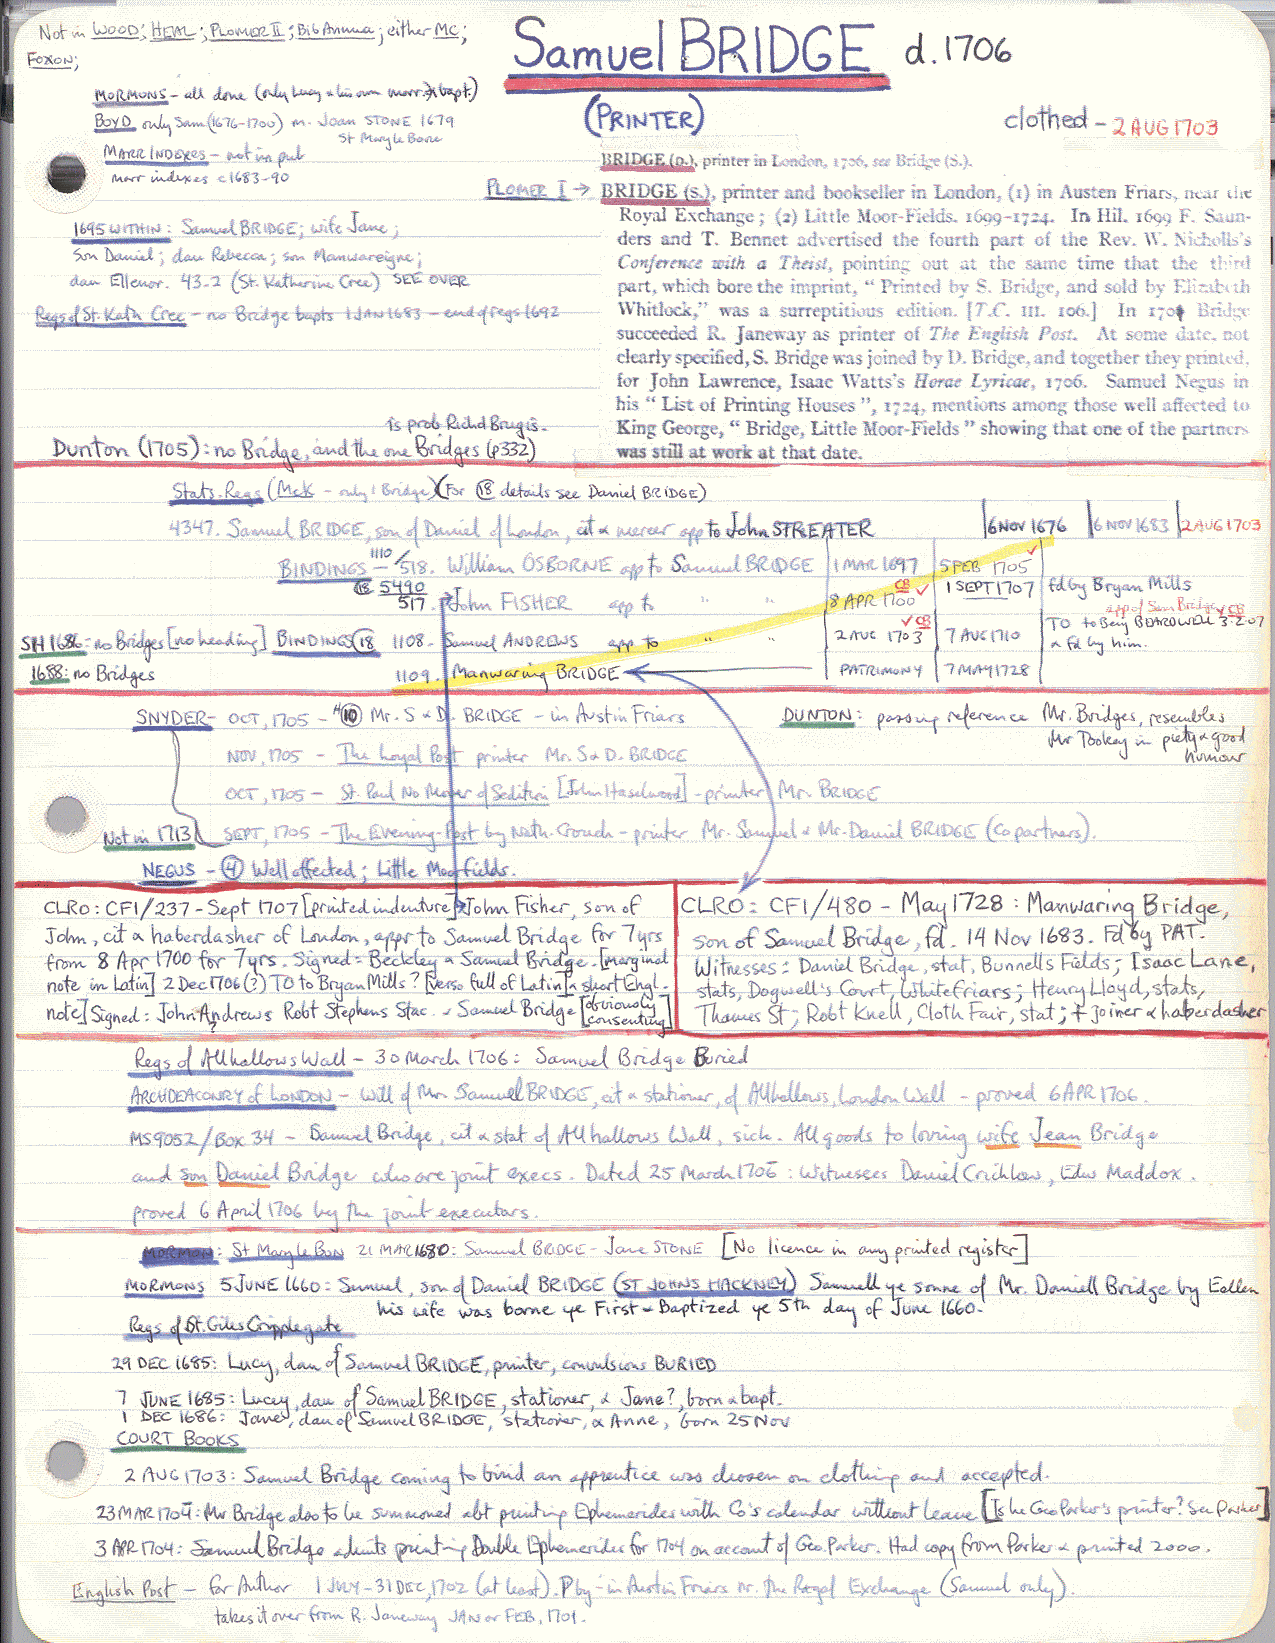 Not in WOOD; HEAL; PLOMER II; Bib Annua; either MC;
FOXON;
Samuel BRIDGE d. 1706
(PRINTER)
clothed - 2 AUG 1703
MORMONS - all done (only Lucy & his own marr. & bapt.)
BOYD only Sam (1676-1700) m. Joan STONE 1679
St Mary le Bone
MARR INDEXES - not in pub
marr indexes c1683-90
BRIDGE (D.), printer in London, 1706, see Bridge (S.).
PLOMER I → BRIDGE (S.), printer and bookseller in London, (1) in Austen Friars, near the
Royal Exchange; (2) Little Moor-Fields. 1699-1724. In Hil. 1699 F. Saun-
ders and T. Bennet advertised the fourth part of the Rev. W. Nicholls's
Conference with a Theist, pointing out at the same time that the third
part, which bore the imprint, "Printed by S. Bridge, and sold by Elizabeth
Whitlock," was a surreptitious edition. [T.C. III. 106.] In 1701 Bridge
succeeded R. Janeway as printer of The English Post. At some date, not
clearly specified, S. Bridge was joined by D. Bridge, and together they printed,
for John Lawrence, Isaac Watts's Horae Lyricae, 1706. Samuel Negus in
his "List of Printing Houses", 1724, mentions among those well affected to
King George, "Bridge, Little Moor-Fields" showing that one of the partners
was still at work at that date.
1695 WITHIN: Samuel BRIDGE; wife Jane;
son Daniel; dau Rebecca; son Manwareigne;
dau Ellenor. 43.2 (St. Katherine Cree) SEE OVER
Regs of St. Kath Cree - no Bridge bapts 1 JAN 1683 - end of regs 1692
is prob Richd Brugis.
Dunton (1705): no Bridge, and the one Bridges (p332)
Stats. Regs (McK - only 1 Bridge) (For 18 details see Daniel BRIDGE)
4347. Samuel BRIDGE, son of Daniel of London, cit & mercer app to John STREATER 6 NOV 1676 6 NOV 1683 2 AUG 1703
BINDINGS - 1110/518. William OSBORNE app to Samuel BRIDGE 1 MAR 1697 5 FEB 1705
18 5490
517. John FISHER app to " " 8 APR 1700 CB 1 SEPT 1707 fd by Bryan Mills
app of Sam Bridge CB
SH 1686: no Bridges [no heading] BINDINGS 18 1108. Samuel ANDREWS app to " " 2 AUG 1703 CB 7 AUG 1710 TO to Benj BEARDWELL 3-2-07
& fd by him.
1688: no Bridges 1109. Manwaring BRIDGE PATRIMONY 7 MAY 1728
SNYDER - OCT, 1705 - 10 Mr. S & D. BRIDGE - in Austin Friars
DUNTON: passing reference Mr. Bridges, resembles
Mr Tookey in piety & good
humour
NOV, 1705 - The Loyal Post printer Mr. S & D. BRIDGE
OCT, 1705 - St. Paul No Mover of Sedition [John Haselwood] - printer Mr. BRIDGE
Not in 1713 SEPT, 1705 - The Evening-Post by Nath. Crouch - printer Mr. Samuel & Mr. Daniel BRIDGE (Co partners).
NEGUS - 4 Well affected; Little Moorfields.
CLRO: CF1/237 - Sept 1707 [printed indenture] John Fisher, son of
John, cit & haberdasher of London, appr to Samuel Bridge for 7 yrs
from 8 Apr 1700 for 7 yrs. Signed: Beckley & Samuel Bridge. [marginal
note in Latin] 2 Dec 1706 (?) TO to Bryan Mills? [verso full of Latin] & short Engl.
note] Signed: John Andrews Robt Stephens Stac. & Samuel Bridge [obviously
consenting]
CLRO: CF1/480 - May 1728: Manwaring Bridge,
son of Samuel Bridge, fd. 14 Nov 1683. Fd by PAT.
Witnesses: Daniel Bridge, stat, Bunnells Fields; Isaac Lane,
stats, Dogwell's Court, Whitefriars; Henry Lloyd, stats,
Thames St; Robt Knell, Cloth Fair, stat; + joiner & haberdasher
Regs of Allhallows Wall - 30 March 1706: Samuel Bridge Buried
ARCHDEACONRY of LONDON - will of Mr. Samuel BRIDGE, cit & stationer, of Allhallows, London Wall - proved 6 APR 1706.
MS 9052/Box 34 - Samuel Bridge, cit & stat of All hallows Wall, sick. All goods to loving wife Jean Bridge
and son Daniel Bridge who are joint execs. Dated 25 March 1706: witnesses Daniel Crichlow, Edw Maddox.
proved 6 April 1706 by the joint executors.
MORMON: St Mary le Bon 21 MAR 1680: Samuel BRIDGE - Jane STONE [No licence in any printed register]
MORMONS 5 JUNE 1660: Samuel, son of Daniel BRIDGE (ST JOHNS HACKNEY) Samuell ye sonne of Mr. Daniell Bridge by Eellen
his wife was borne ye First & Baptized ye 5th day of June 1660.
Regs of St. Giles Cripplegate
29 DEC 1685: Lucy, dau of Samuel BRIDGE, printer, convulsions BURIED
7 JUNE 1685: Lucey, dau of Samuel BRIDGE, stationer, & Jane?, born & bapt.
1 DEC 1686: Jane, dau of Samuel BRIDGE, stationer, & Anne, born 25 Nov
COURT BOOKS
2 AUG 1703: Samuel Bridge coming to bind an apprentice was chosen on clothing and accepted.
23 MAR 1704: Mr Bridge also to be summoned abt printing Ephemerides with Co's calendar without leave [Is he Geo Parker's printer? See Parker]
3 APR 1704: Samuel Bridge admits printing Double Ephemerides for 1704 on account of Geo. Parker. Had copy from Parker & printed 2000.
English Post - for Author 1 JULY - 31 DEC, 1702 (at least). P by - in Austin Friars nr. the Royal Exchange (Samuel only).
takes it over from R. Janeway JAN or FEB, 1701.